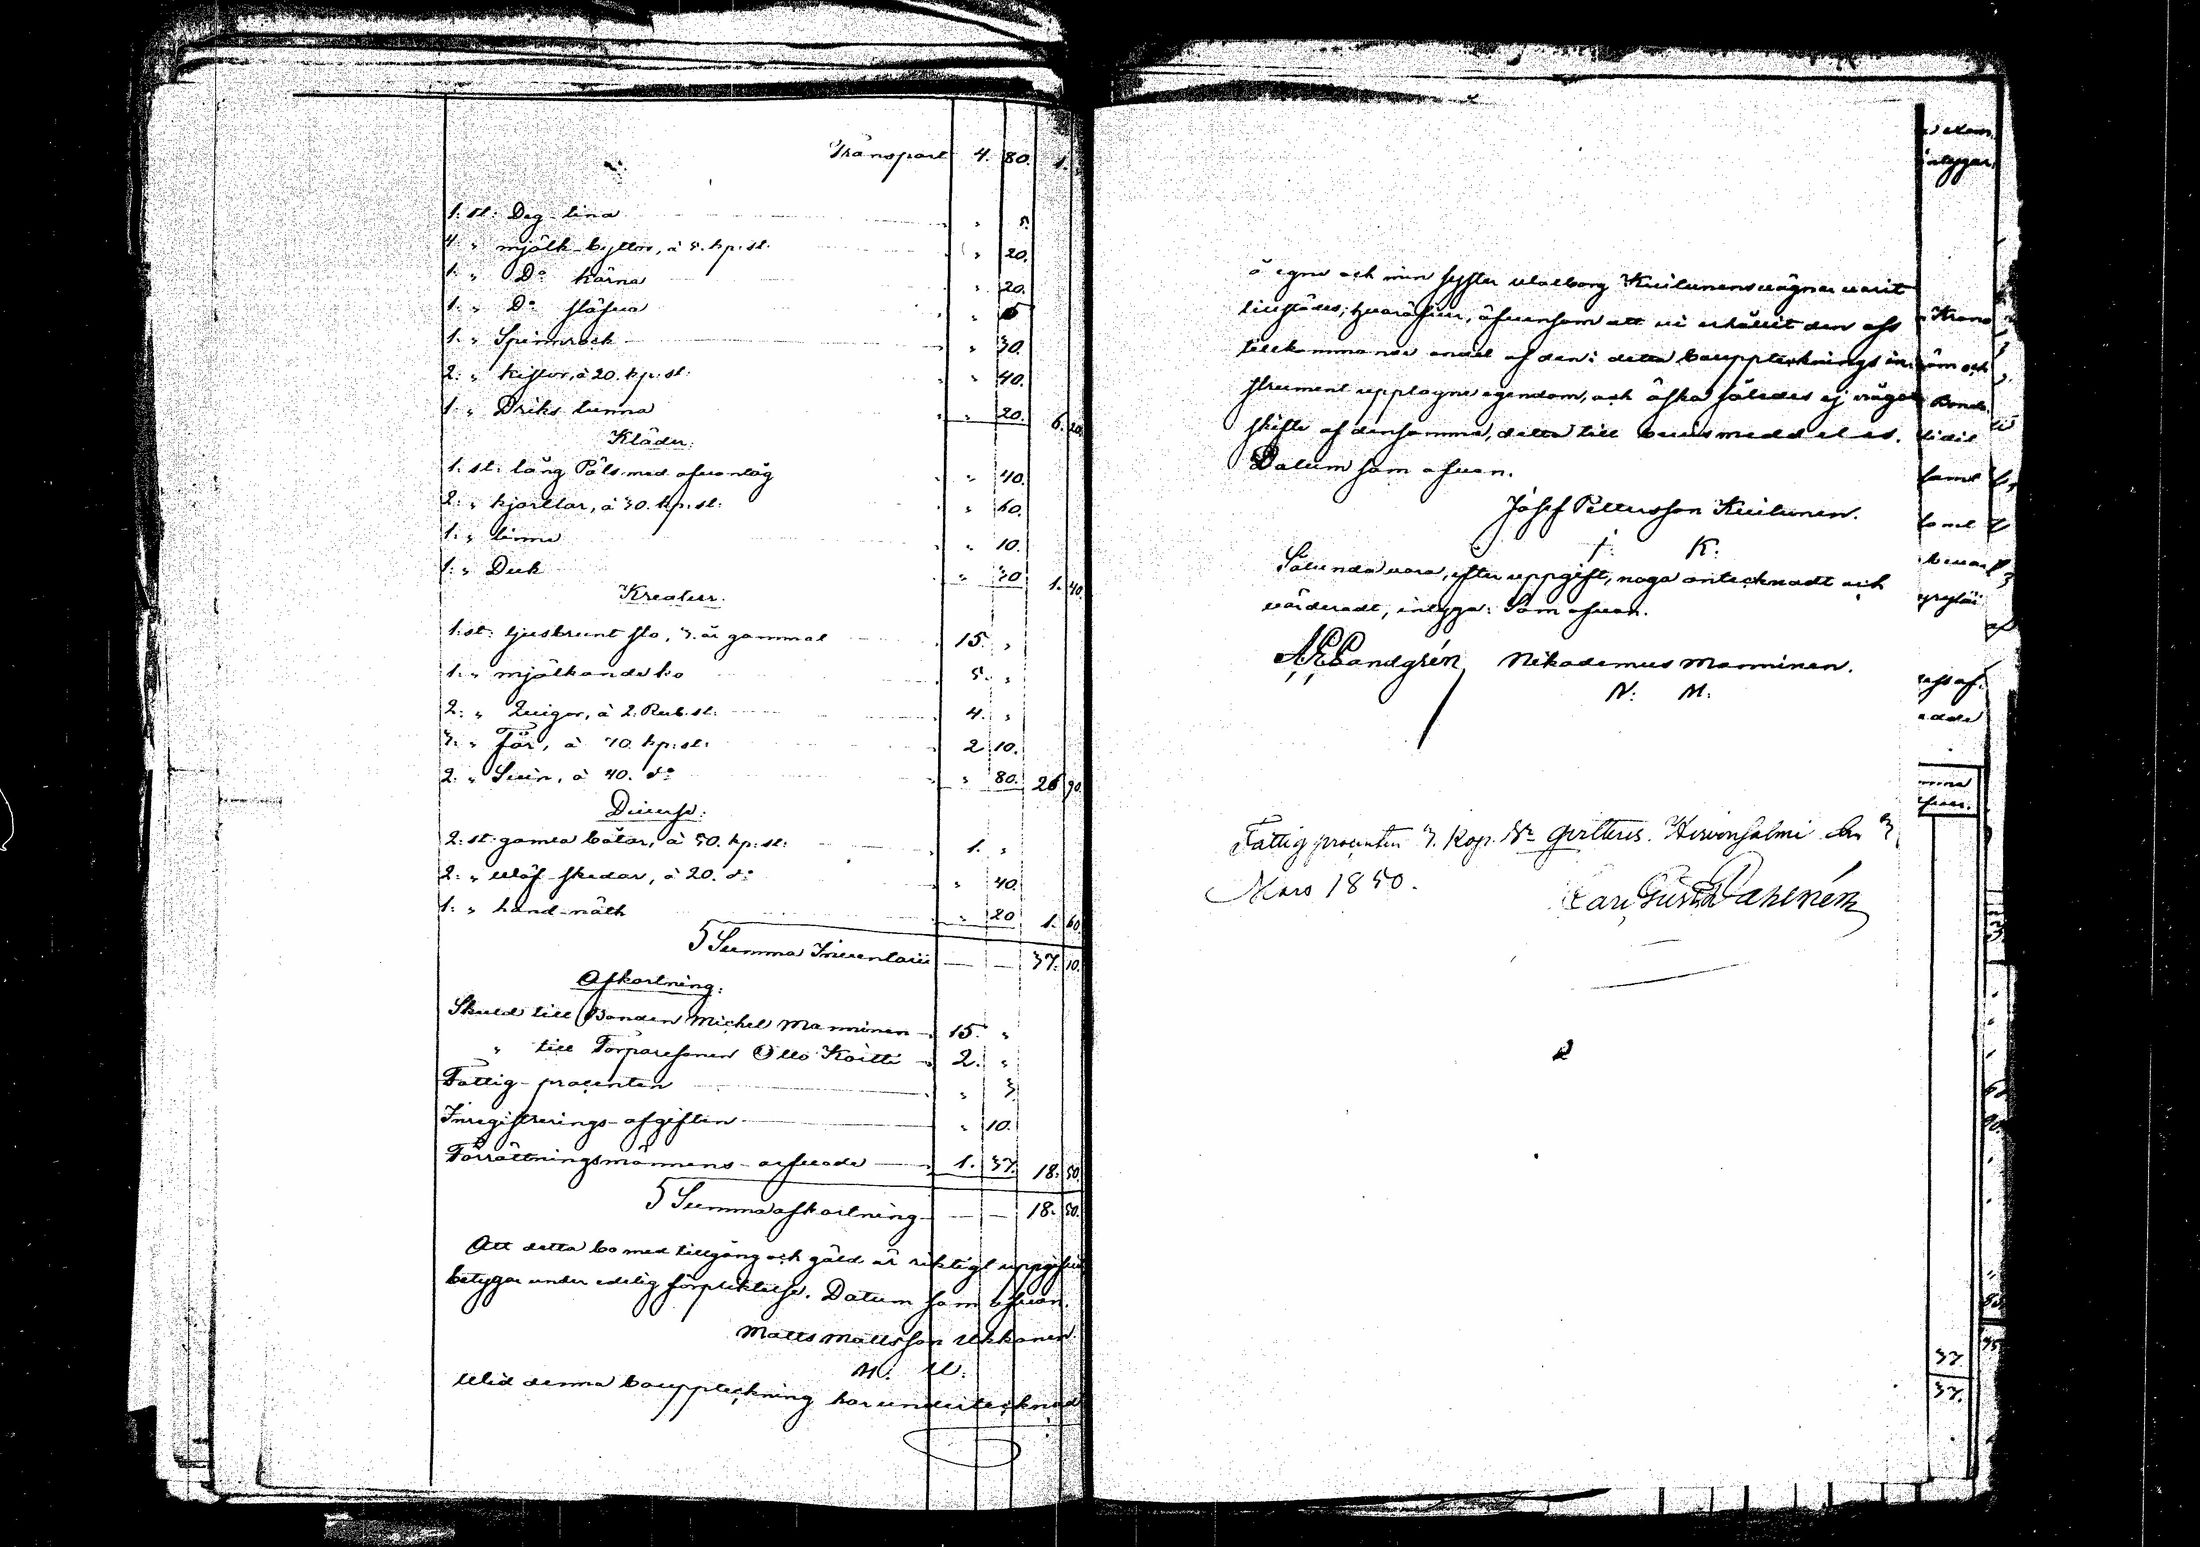 Transport 4. 80. 1.
1. st: Deg-tina " 5.
4. " mjölk-byttor, à 5. kp: st: " 20.
1. " Do kärna " 20.
1. " Do " 5
1. " Spinnrock " 30.
2. " kistor, à 20. kp: st: " 40.
1. " Driks tunna " 20. 6. 20.
Kläder:
1. st: lång Päls med ofvantåg " 40.
2. " kjortlar, à 30. kp: st: " 60.
1. " " 10.
1. " Duk " 30 1. 40.
Kreatur.
1. st: ljusbrunt sto, 3. år gammal 15. "
1. " mjölkande ko 5. "
2. " Quigor, à 2. Rub. st: 4. "
3. " Får, à 70. kp: st: 2 10.
2. " Svin, à 40. do " 80. 26 90.
Diverse:
2. st: gamla båtar, à 50. kp: st: 1. "
2. " Wäf-skedar, à 20. do " 40.
1. " hand-näth " 20 1. 60.
Summa Inventarii — — 37. 10.
Afkortning:
Skuld till Bonden Michel Manninen 15. "
" till Torparesonen Otto Koitti 2. "
Fattig-procenten " 3.
Inregistrerings-afgiften " 10.
Förrättningsmännens-arfvode 1. 37. 18. 50.
Summa afkortning — — 18. 50.
Att detta bo med tillgång och gäld är riktigt uppgifvit
betygar under edelig förpliktelse. Datum som ofvan.
Matts Mattsson Ukkonen
M. U.
Wid denna bouppteckning har undertecknad
å egna och min syster Walborg Kuilunens vägnar varit
tillstädes; hvaräfven, äfvensom att vi erhållit den oss
tillkommande andel af den i detta bouppteknings in-
strument upptagne egendom, och äska således ej något
skifte af densamma, detta till bevis meddeles.
Datum som ofvan.
Josef Pettersson Kuilunen.
J. K.
Sålunda vara, efter uppgift, noga antecknadt och
värderadt, intyga: Som ofvan.
Sandgrén Nikodemus Manninen.
N. M.
Fattig procenten 3. Kop. Sr qvitteras. Hirvensalmi den 3
Mars 1850.
Carl Gustaf Dahlhném